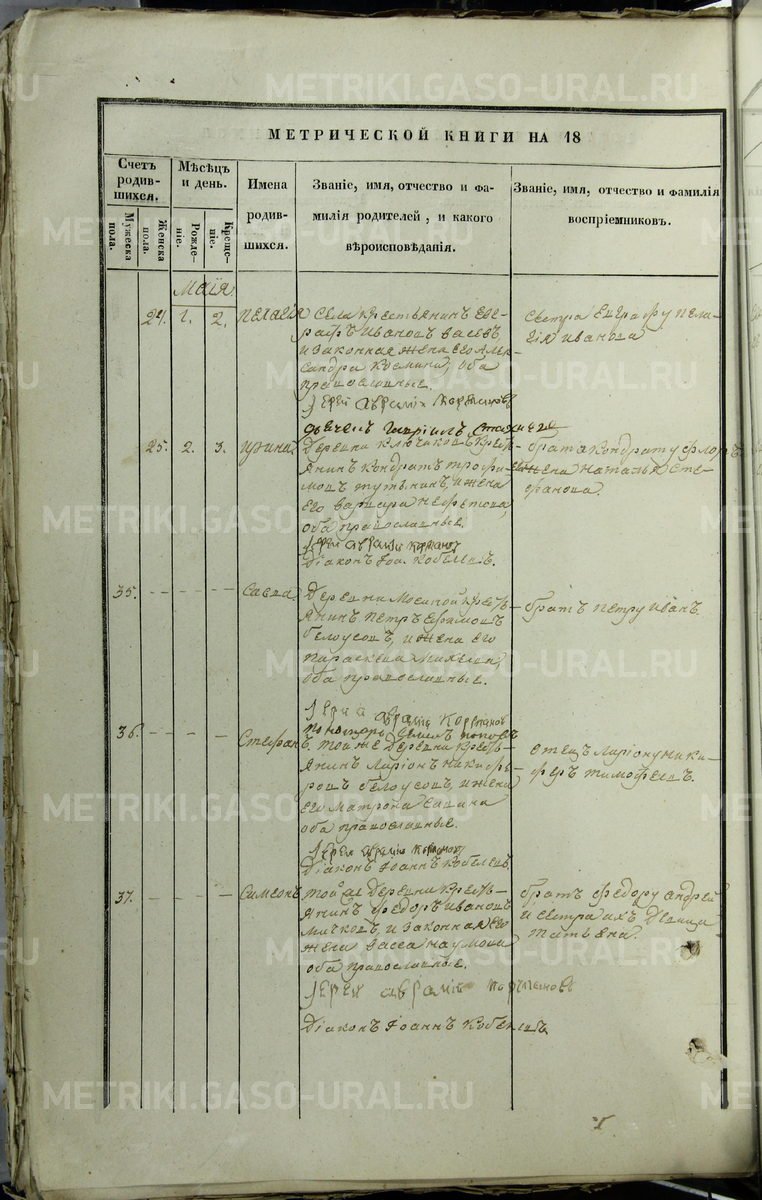 METRIKI.GASO-URAL.RU
МЕТРИЧЕСКОЙ КНИГИ НА 18
Счетъ родив-шихся.
Мужеска пола.
Женска пола.
Мѣсяцъ и день.
Рожде-ніе.
Креще-ніе.
Имена
родив-
шихся.
Званіе, имя, отчество и фа-
милія родителей, и какого
вѣроисповѣданія.
Званіе, имя, отчество и фамилія
воспріемниковъ.
Маія
24. 1. 2. Пелагія
Села крестьянинъ Евг-
рафъ Ивановъ
и законная жена его Алек-
сандра Космина, оба
православные.
Іерей Аврамій
сестра Евграфу Пела-
гія Иванова
25. 2. 3. Ирина
Деревни Ключиковъ кресть-
янинъ Кондратъ Трофи-
мовъ и жена
его Варвара
оба православные.
Іерей Аврамій
Діаконъ Іоа. Кобелевъ.
брат Кондрату
жена Наталья Сте-
фанова.
35. Савва
Деревни кресть-
янинъ Петръ
Белоусовъ, и жена его
Параскева
оба православные.
Іерей Аврамій
братъ Петру Иванъ.
36. Стефанъ
той же деревни кресть-
янинъ Ларіонъ Никифо-
ровъ Белоусовъ, и жена
его Матрона Савина
оба православные.
Іерей Аврамій
Діаконъ Іоаннъ Кобелевъ.
отецъ Ларіону Ники-
феръ Тимофеевъ.
37. Симеонъ
той же деревни кресть-
янинъ Федоръ Ивановъ
и законная его
жена Васса Наумова
оба православные.
Іерей Аврамій
Діаконъ Іоаннъ Кобелевъ
братъ Федору Андрей
и сестра ихъ девица
Татьяна.